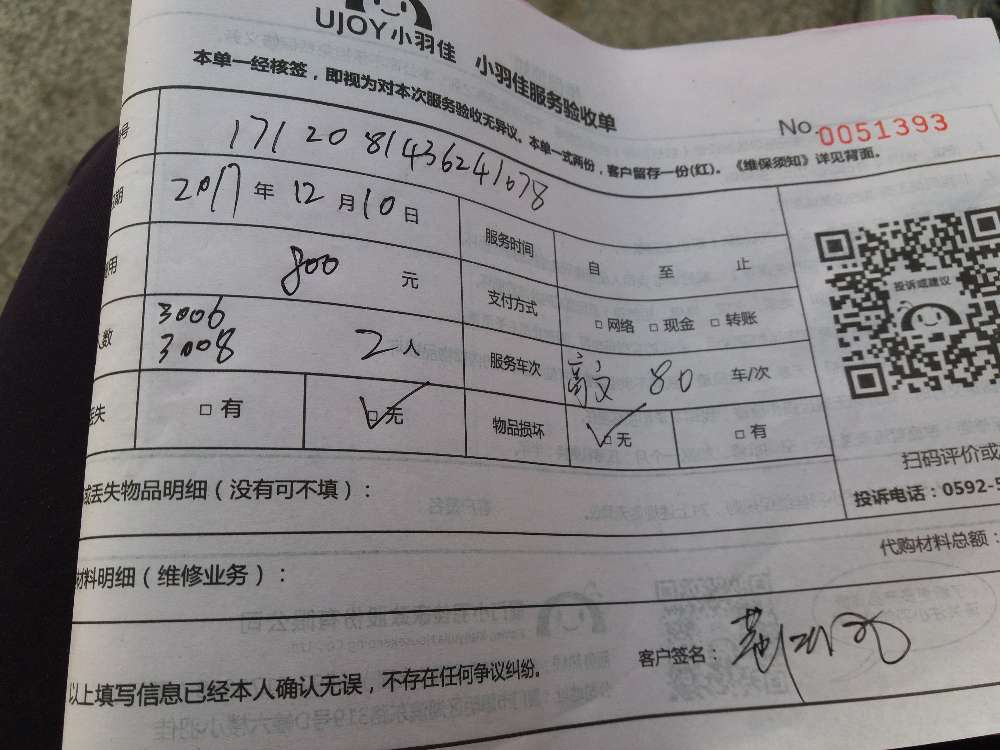 UJOY小羽佳 小羽佳服务验收单
本单一经核签，即视为对本次服务验收无异议。本单一式两份，客户留存一份(红)。《维保须知》详见背面。
No.0051393
号 1712081436241078
期 2017年12月10日 服务时间 自 至 止
用 800 元 支付方式 □网络 □现金 □转账
人数 3006
3008 2人 服务车次 80 车/次
丢失 □有 □无 物品损坏 □无 □有
投诉或建议
扫码评价或
投诉电话：0592-5
或丢失物品明细（没有可不填）：
代购材料总额：
材料明细（维修业务）：
客户签名：
以上填写信息已经本人确认无误，不存在任何争议纠纷。